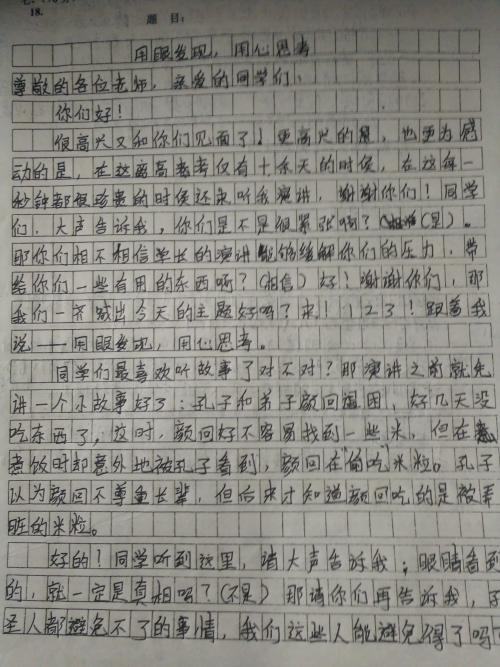 18.
题 目:
用眼发现，用心思考
尊敬的各位老师，亲爱的同学们：
你们好！
很高兴又和你们见面了！更高兴的是，也更为感
动的是，在这离高考仅有十余天的时候，在这每一
秒钟都很珍贵的时候还来听我演讲，谢谢你们！同学
们，大声告诉我，你们是不是很紧张啊？（是）。
那你们相不相信学长的演讲能够缓解你们的压力，带
给你们一些有用的东西啊？（相信）好！谢谢你们，那
我们一齐喊出今天的主题好吗？来！1 2 3！跟着我
说——用眼发现，用心思考。
同学们最喜欢听故事了对不对？那演讲之前就先
讲一个小故事好了：孔子和弟子颜回遇困，好几天没
吃东西了，这时，颜回好不容易找到一些米，但在
煮饭时却意外地被孔子看到，颜回在“偷吃”米粒。孔子
以为颜回不尊重长辈，但后来才知道颜回吃的是被弄
脏的米粒。
好的！同学听到这里，请大声告诉我；眼睛看到
的，就一定是真相吗？（不是）那请你们再告诉我，
圣人都避免不了的事情，我们这些人能避免得了吗？